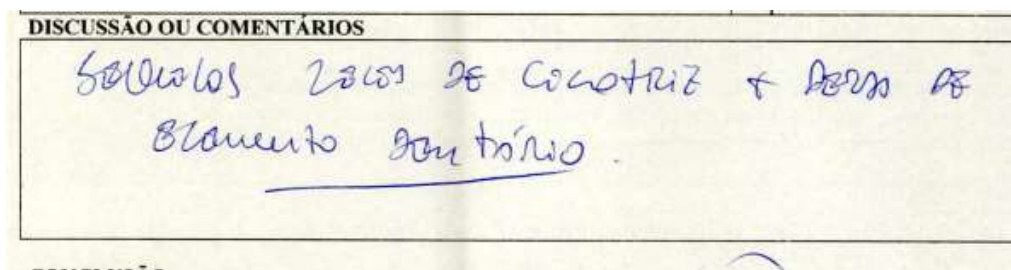 DISCUSSÃO OU COMENTÁRIOS
SEQUELAS LEVES DE CICATRIZ + PERDA DE
ELEMENTO DENTÁRIO.